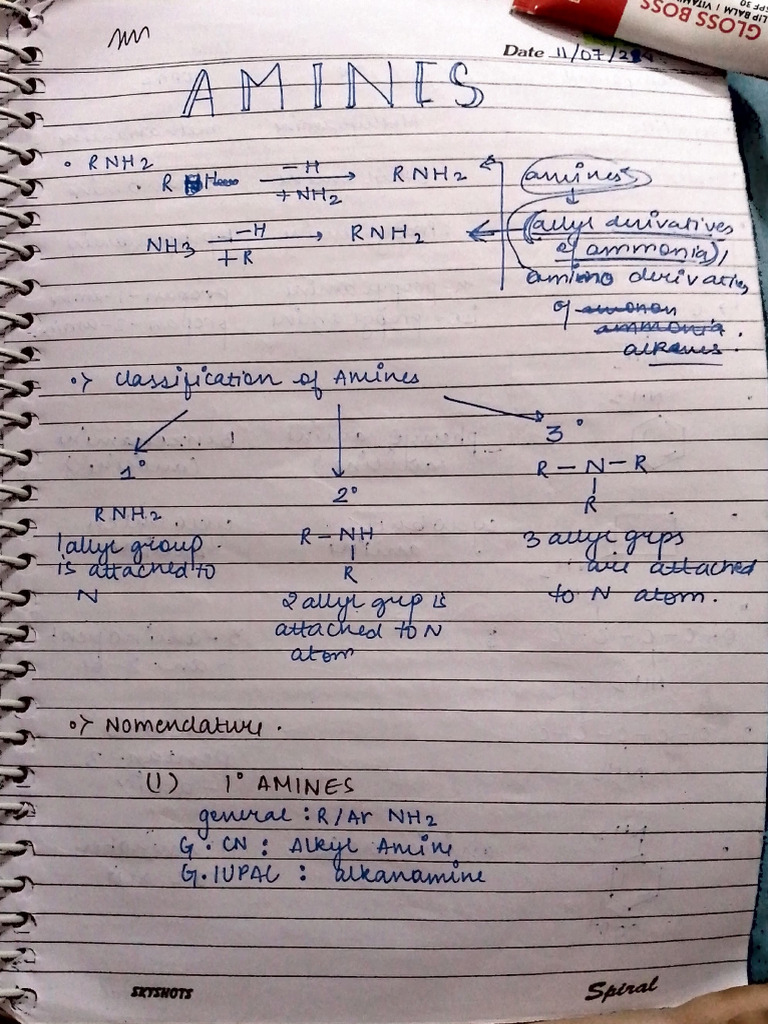 GLOSS BOSS
LIP BALM | VITAM
SPF 30
Date 11/07/2
AMINES
• RNH2
R H —H/+NH2→ RNH2
amines
NH3 —H/+R→ RNH2
(allyl derivatives
of ammonia),
amino derivaties
of
ammonia.
alkanes.
•> Classification of Amines
1° 2° 3°
RNH2
R – NH
|
R
R – N – R
|
R
1 allyl group
is attached to
N
2 allyl grp is
attached to N
atom
3 allyl grps
are attached
to N atom.
•> Nomenclature.
(1) 1° AMINES
general : R/Ar NH2
G. CN : Alkyl Amine
G. IUPAC : alkanamine
SKYSHOTS
Spiral